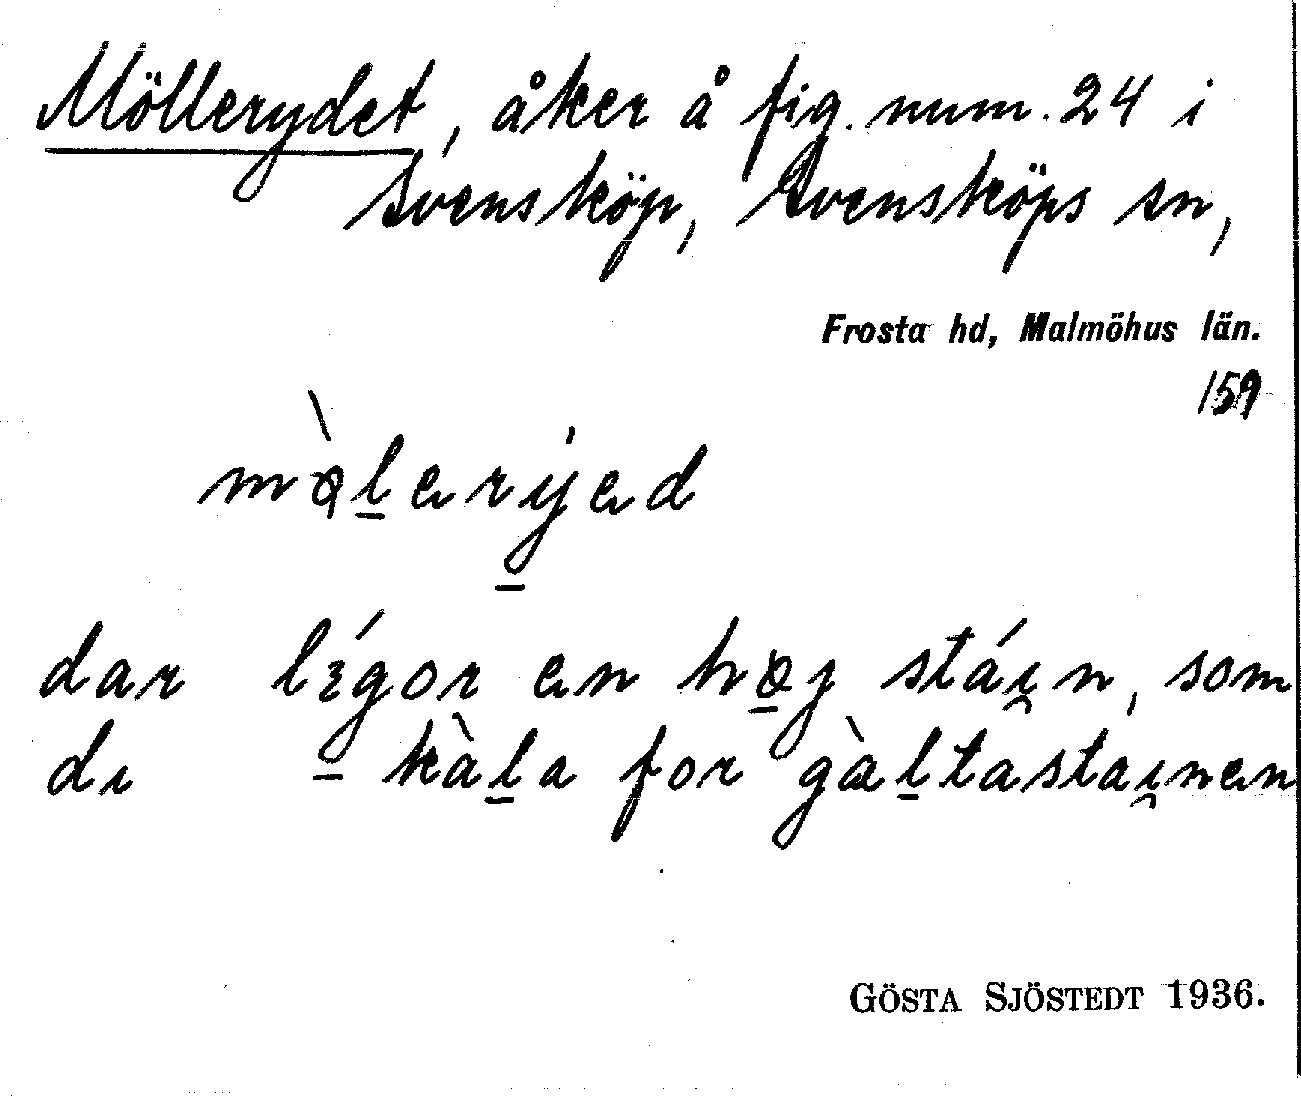 Möllerydet, åker å fig. num. 24 i
Svensköp, Svensköps sn,
Frosta hd, Malmöhus län.
159
mø̀l̲erẏ̲ed
dar lɩ́g̲or en hø̲j stáɩ̯n, som
dɩ kàl̲a for gàl̲tastaɩ̯nen
GÖSTA SJÖSTEDT 1936.